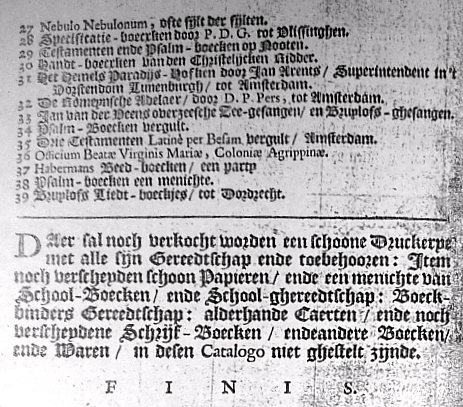 27 Nebulo Nebulonum, ofte fijlt der fijlten.
28 Specificatie-boecxken door P. D. G. tot Vlissinghen.
29 Testamenten ende Psalm-boecken op Nooten.
30 Handt-boecxken van den Christelijcken Ridder.
31 Het Hemels Paradijs-Hofken door Jan Arents / Superintendent in't
Vorstendom Lunenburgh / tot Amsterdam.
32 De Romeynsche Adelaer / door D. P. Pers, tot Amsterdam.
33 Jan van der Veens overzeesche Zee-gesangen / en Bruylofs-ghesangen.
34 Psalm-Boecken vergult.
35 Drie Testamenten Latinè per Besam vergult / Amsterdam.
36 Officium Beatæ Virginis Mariæ, Coloniæ Agrippinæ.
37 Habermans Beed-boecken / een party
38 Psalm-boecken een menichte.
39 Bruylofs Liedt-boeckjes / tot Dordrecht.
DAer sal noch verkocht worden een schoone Druckerye
met alle sijn Gereedtschap ende toebehooren: Item
noch verscheyden schoon Papieren / ende een menichte van
School-Boecken / ende School-ghereedtschap: Boeck-
binders Gereedtschap: alderhande Caerten / ende noch
verscheydene Schrijf-Boecken / endeandere Boecken /
ende Waren / in desen Catalogo niet ghestelt zijnde.
F I N I S.